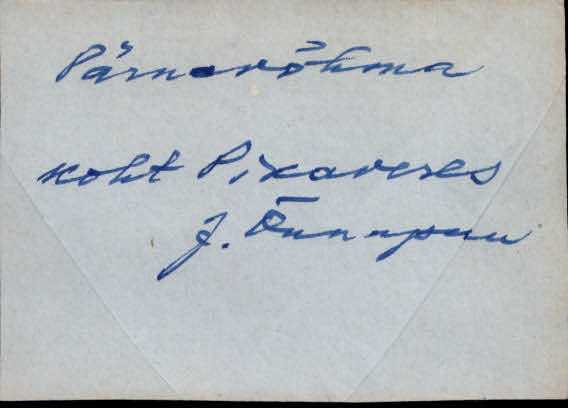 Pärnavõhma
koht Pixaveres
J. Õunapuu